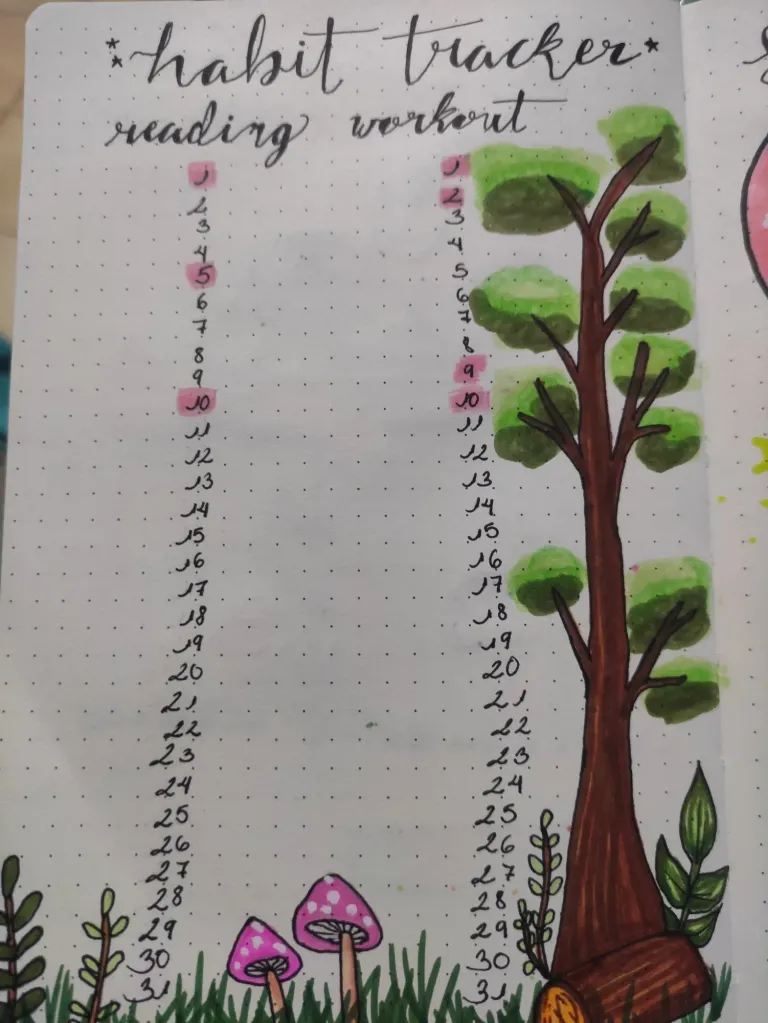 habit tracker
reading workout
1 1
2 2
3 3
4 4
5 5
6 6
7 7
8 8
9 9
10 10
11 11
12 12
13 13
14 14
15 15
16 16
17 17
18 18
19 19
20 20
21 21
22 22
23 23
24 24
25 25
26 26
27 27
28 28
29 29
30 30
31 31